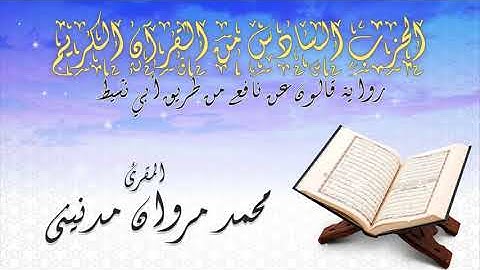 الحزب السادس من القرآن الكريم
رواية قالون عن نافع من طريق أبي نشيط
المقرئ
محمد مروان مدنيني